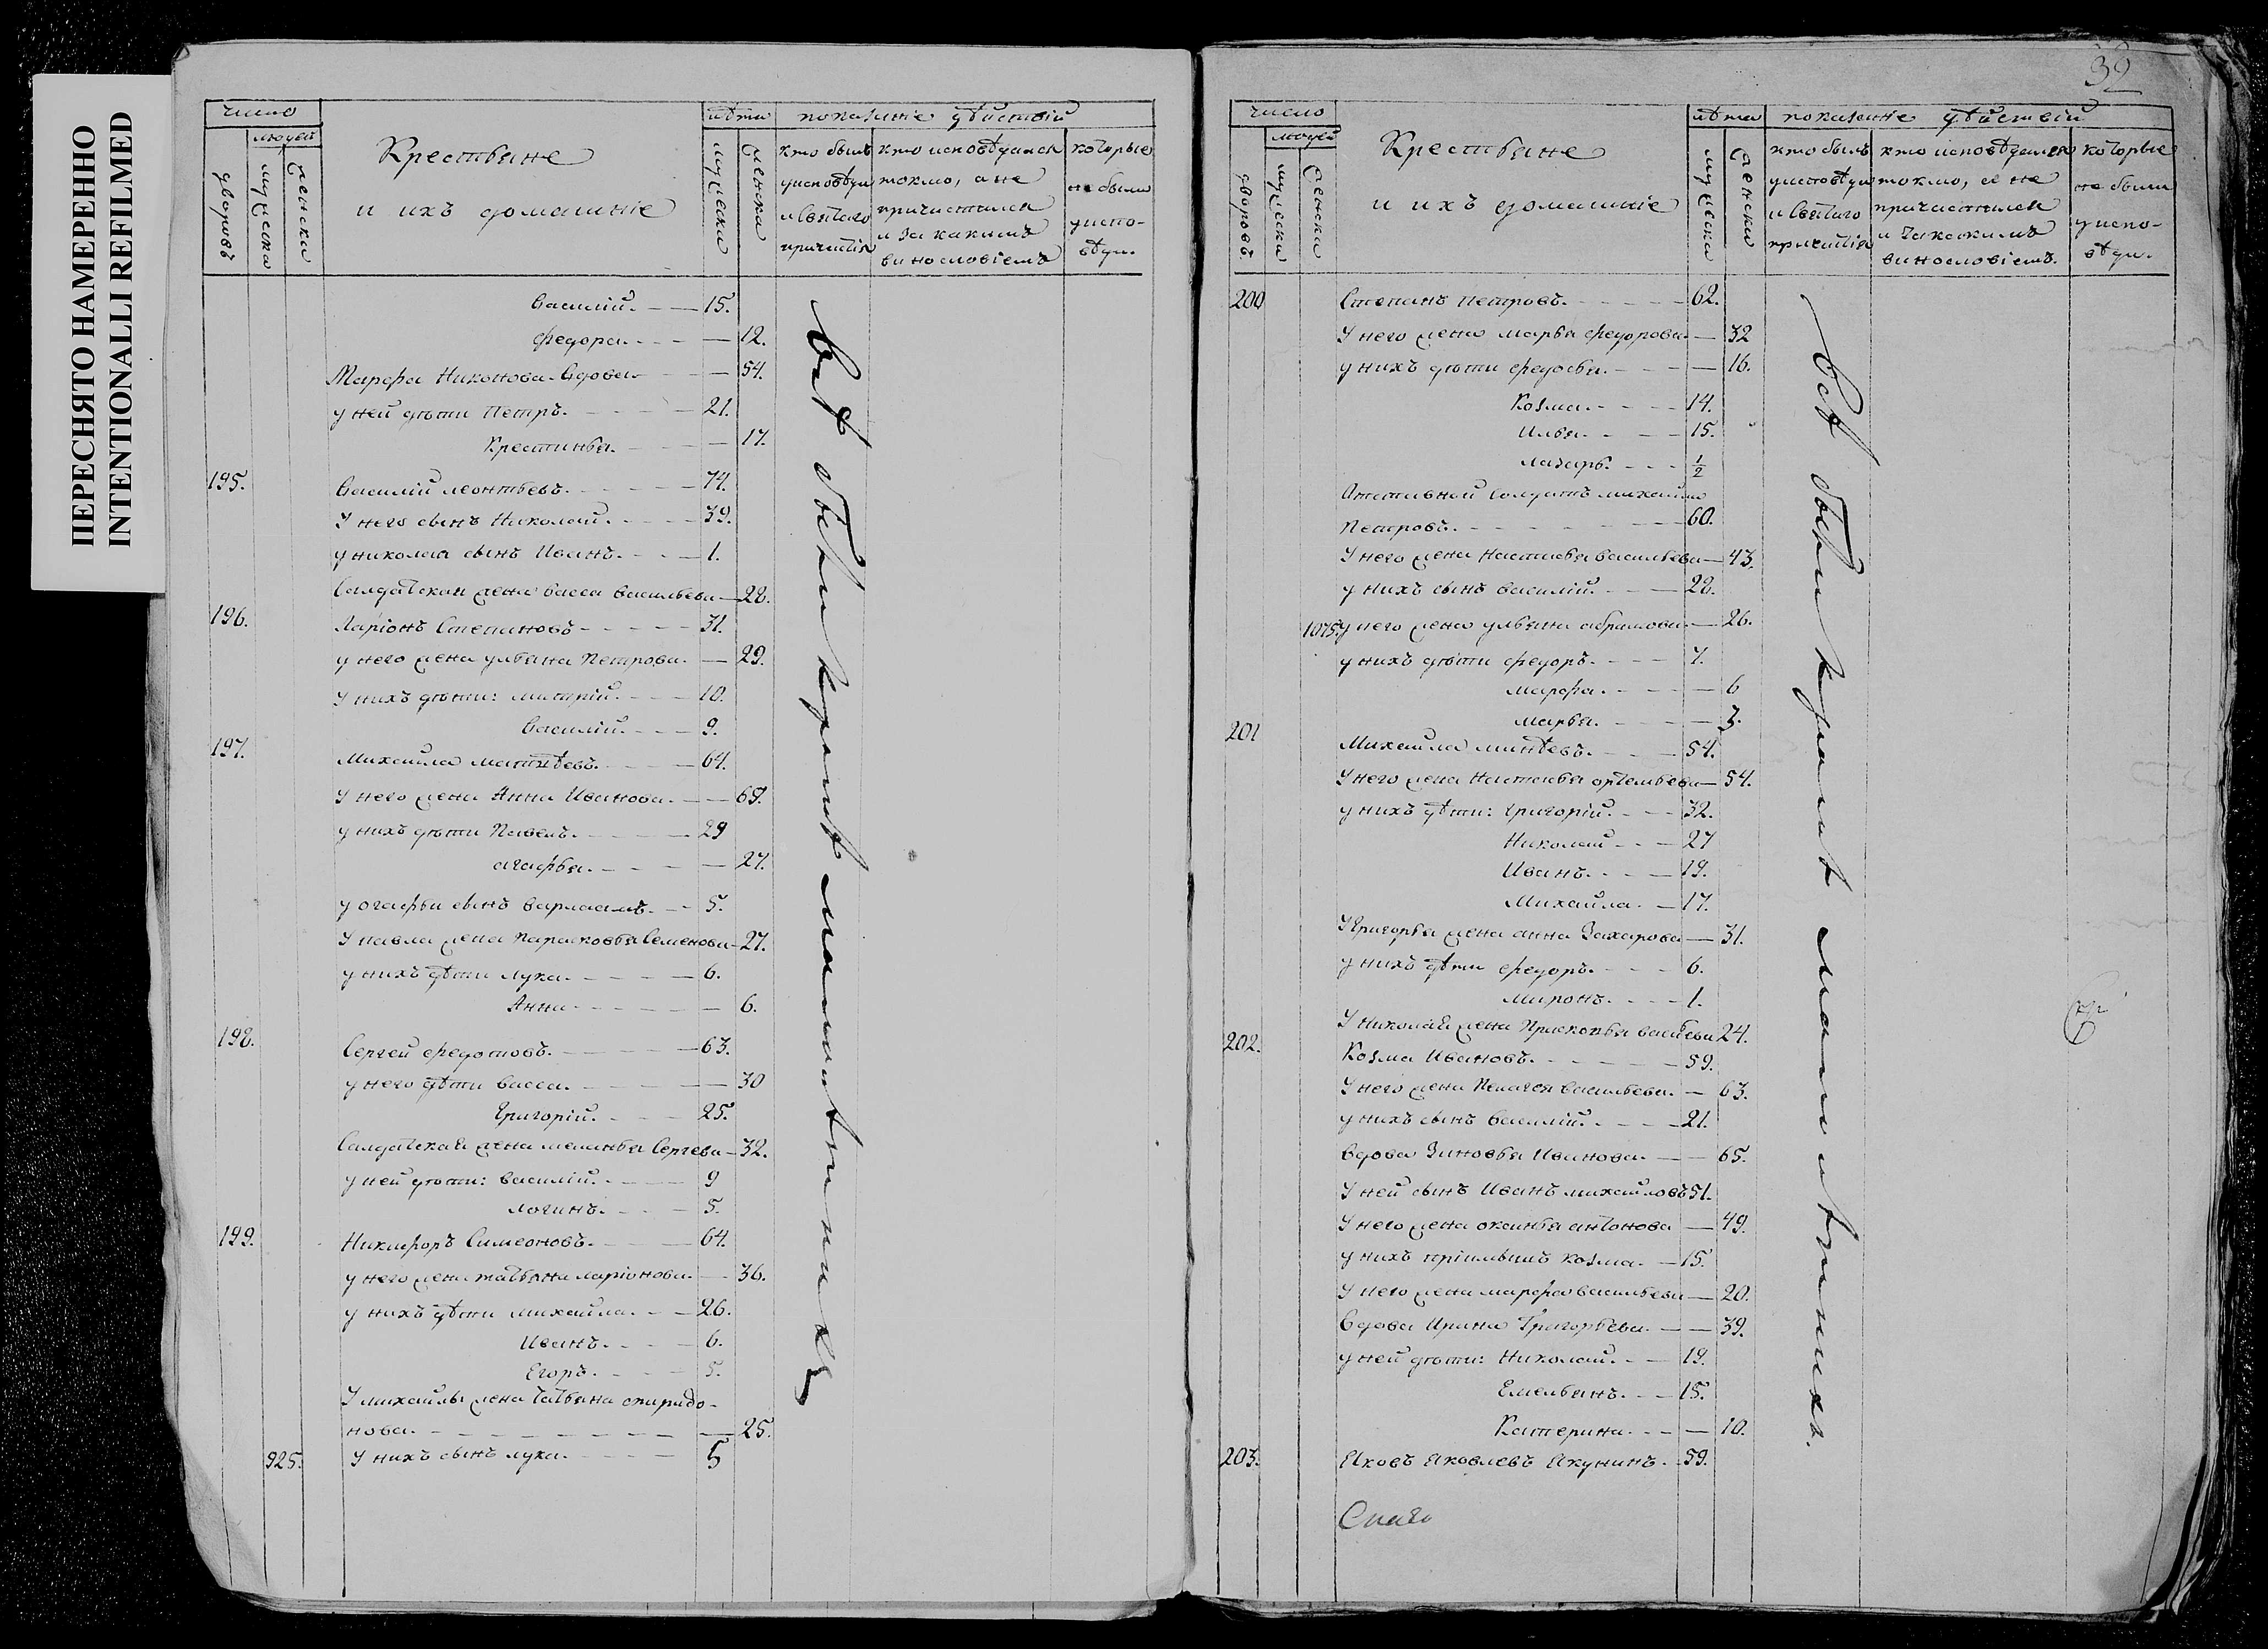 ПЕРЕСНЯТО НАМЕРЕННО
INTENTIONALLI REFILMED
число
людей
дворовъ
мужеска
женска
Крестьяне
и ихъ домашніе
лѣта
мужеска
женска
показаніе дѣйствій
кто былъ у исповѣди и Святаго причастія
кто исповѣдался токмо, а не причастился и за какимъ винословіемъ
которые не были у исповѣди.
Василій. 15.
Федора. 12.
Марфа Никонова вдова 54.
у ней дѣти Петръ. 21.
Крестинья. 17.
195. Василій Леонтьевъ. 74.
У него сынъ Николай. 39.
у николая сынъ Иванъ. 1.
Салдатская жена васса васильева 28.
196. Ларіонъ Степановъ 31.
у него жена ульяна Петрова. 29.
У нихъ дѣти: митрій. 10.
Василій. 9.
197. Михайла матвѣевъ. 64.
У него жена Анна Иванова. 65.
у нихъ дѣти Павелъ. 29
агафья. 27.
у огафьи сынъ варлаамъ. 5.
У павла жена Парасковья Семенова 27.
у нихъ дѣти лука. 6.
Анна 6.
198. Сергей федотовъ. 63.
у него дѣти васса. 30
Григорій. 25.
Салдатская жена меланья Сергева 32.
у ней дѣти: василій. 9
логинъ. 5.
199. Никифоръ Симеоновъ. 64.
у него жена татьяна ларіонова. 36.
у нихъ дѣти михайла. 26.
Иванъ. 6.
Егоръ. 5.
У михайлы жена татьяна спиридо-
нова. 25.
925. У нихъ сынъ лука. 5
всѣ были
32
число
людей
дворовъ
мужеска
женска
Крестьяне
и ихъ домашніе
лѣта
мужеска
женска
показаніе дѣйствій
кто былъ у исповѣди и Святаго причастія
кто исповѣдался токмо, а не причастился и за какимъ винословіемъ.
которые не были у исповѣди.
200 Степанъ петровъ. 62.
У него жена марья федорова. 32
у нихъ дѣти федосья. 16.
Козма. 14.
Илья. 15.
лазарь. 1/2
Отставной Солдатъ михайла
Петровъ. 60.
У него жена Настасья васильева 43.
у нихъ сынъ василій. 28.
1075. у него жена ульяна абрамова. 26.
у нихъ дѣти федоръ. 7.
марфа. 6
марья. 3.
201 Михайла минѣевъ. 54.
У него жена Настасья ортемьева 54.
у нихъ дѣти: Григорій. 32.
Николай 27
Иванъ. 19.
Михайла. 17.
У Григорья жена анна Захарова 31.
у нихъ дѣти федоръ. 6.
миронъ. 1.
У Николая жена Прасковья васильева 24.
202. Козма Ивановъ. 59.
У него жена Пелагея васильева. 63.
у нихъ сынъ василій. 21.
вдова Зиновья Иванова. 65.
У ней сынъ Иванъ михайловъ 51.
У него жена оксинья антонова 49.
у нихъ пріимышъ козма. 15.
У него жена марфа васильева 20.
вдова Ирина Григорьева. 39.
у ней дѣти: Николай. 19.
Емельянъ. 15.
Катерина. 10.
203. Яковъ Яковлевъ Якунинъ. 59.
всѣ были